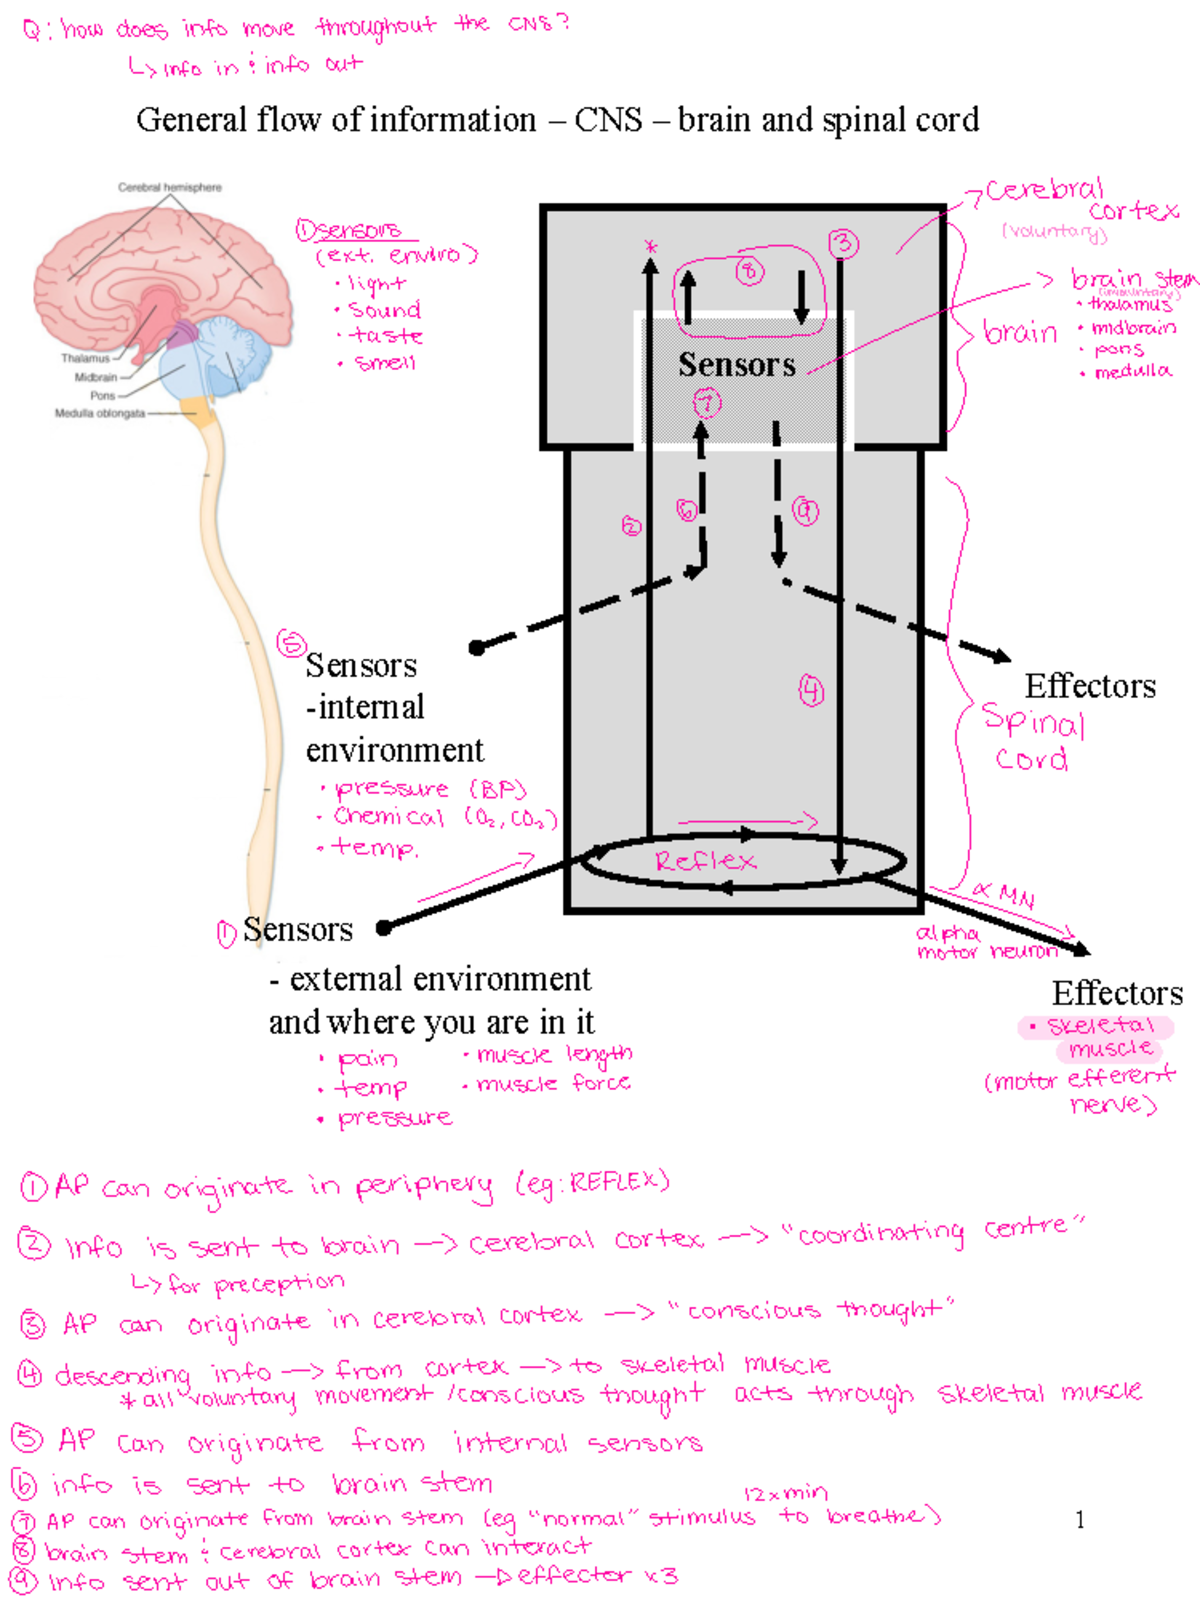 Q: how does info move throughout the CNS?
↳ info in & info out
General flow of information – CNS – brain and spinal cord
Cerebral hemisphere
Thalamus
Midbrain
Pons
Medulla oblongata
① sensors
(ext. enviro)
• light
• sound
• taste
• smell
*
⑧
③
Sensors
⑦
→ cerebral
cortex
(voluntary)
> brain stem
(involuntary)
• thalamus
• midbrain
• pons
• medulla
brain
②
⑥
⑨
④
⑤
Sensors
-internal
environment
• pressure (BP)
• chemical (O₂, CO₂)
• temp.
Effectors
Spinal
cord
Reflex
① Sensors
- external environment
and where you are in it
• pain
• temp
• pressure
• muscle length
• muscle force
∝ MN
alpha
motor neuron
Effectors
• skeletal
muscle
(motor efferent
nerve)
① AP can originate in periphery (eg: REFLEX)
② info is sent to brain → cerebral cortex → "coordinating centre"
↳ for preception
③ AP can originate in cerebral cortex → "conscious thought"
④ descending info → from cortex → to skeletal muscle
* all "voluntary movement / conscious thought acts through skeletal muscle
⑤ AP can originate from internal sensors
⑥ info is sent to brain stem
12xmin
⑦ AP can originate from brain stem (eg "normal" stimulus to breathe)
⑧ brain stem & cerebral cortex can interact
⑨ info sent out of brain stem → effector x3
1